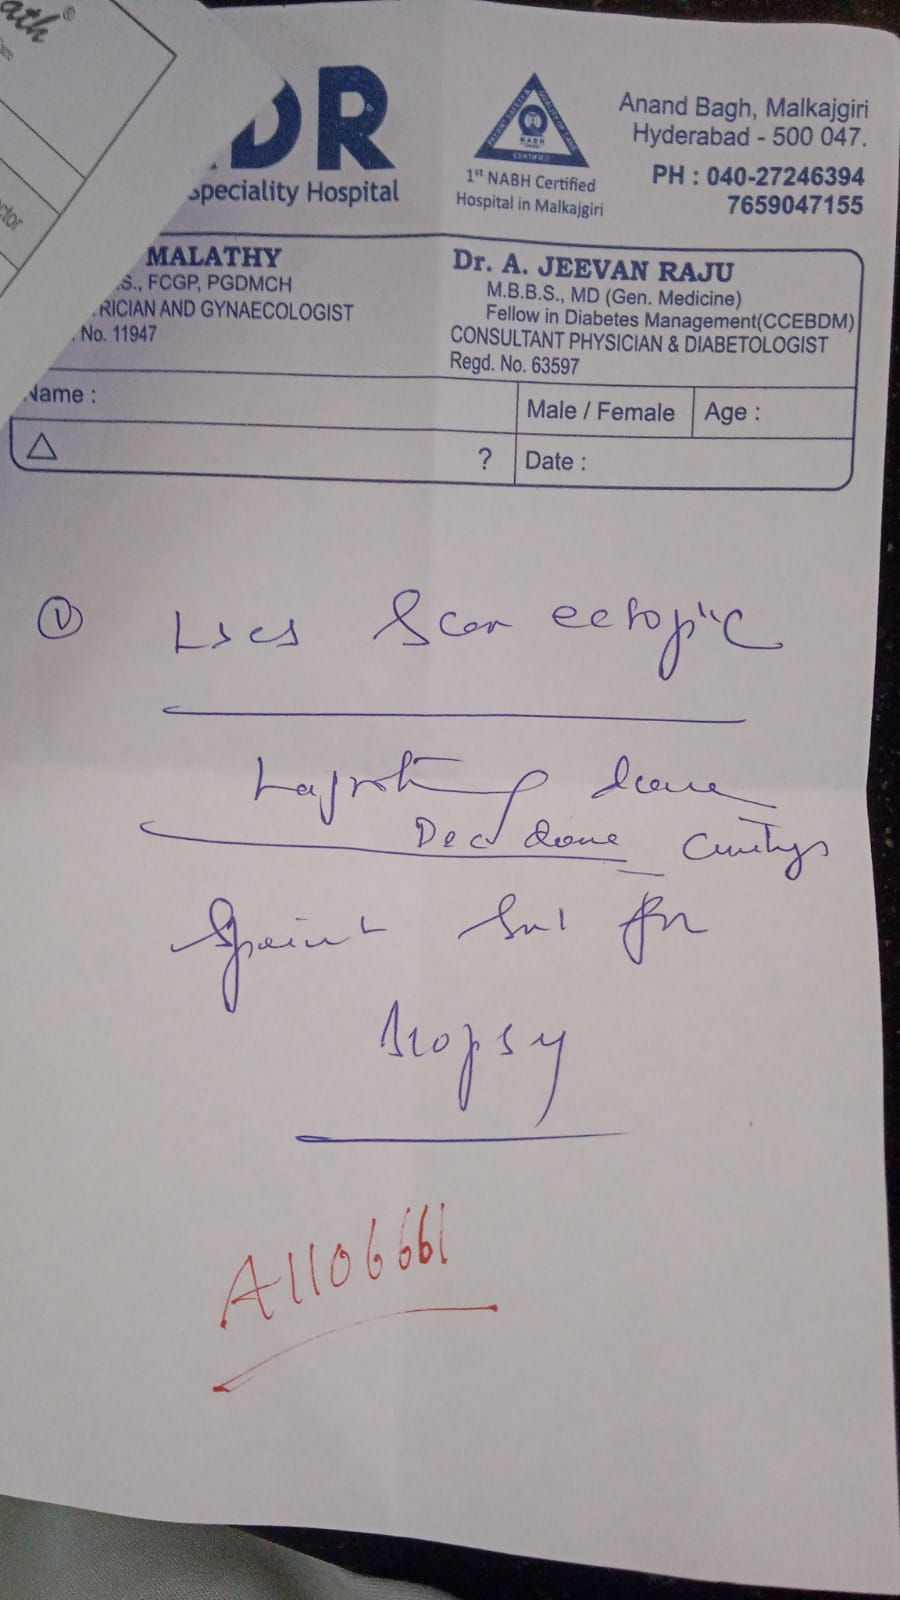 ath®
DR
Speciality Hospital
1st NABH Certified
Hospital in Malkajgiri
NABH
CERTIFIED
Anand Bagh, Malkajgiri
Hyderabad - 500 047.
PH : 040-27246394
7659047155
MALATHY
.S., FCGP, PGDMCH
RICIAN AND GYNAECOLOGIST
. No. 11947
Dr. A. JEEVAN RAJU
M.B.B.S., MD (Gen. Medicine)
Fellow in Diabetes Management(CCEBDM)
CONSULTANT PHYSICIAN & DIABETOLOGIST
Regd. No. 63597
Name :
Male / Female
Age :
?
Date :
LSCS Scar ectopic
done
done
for
Biopsy
A1106661